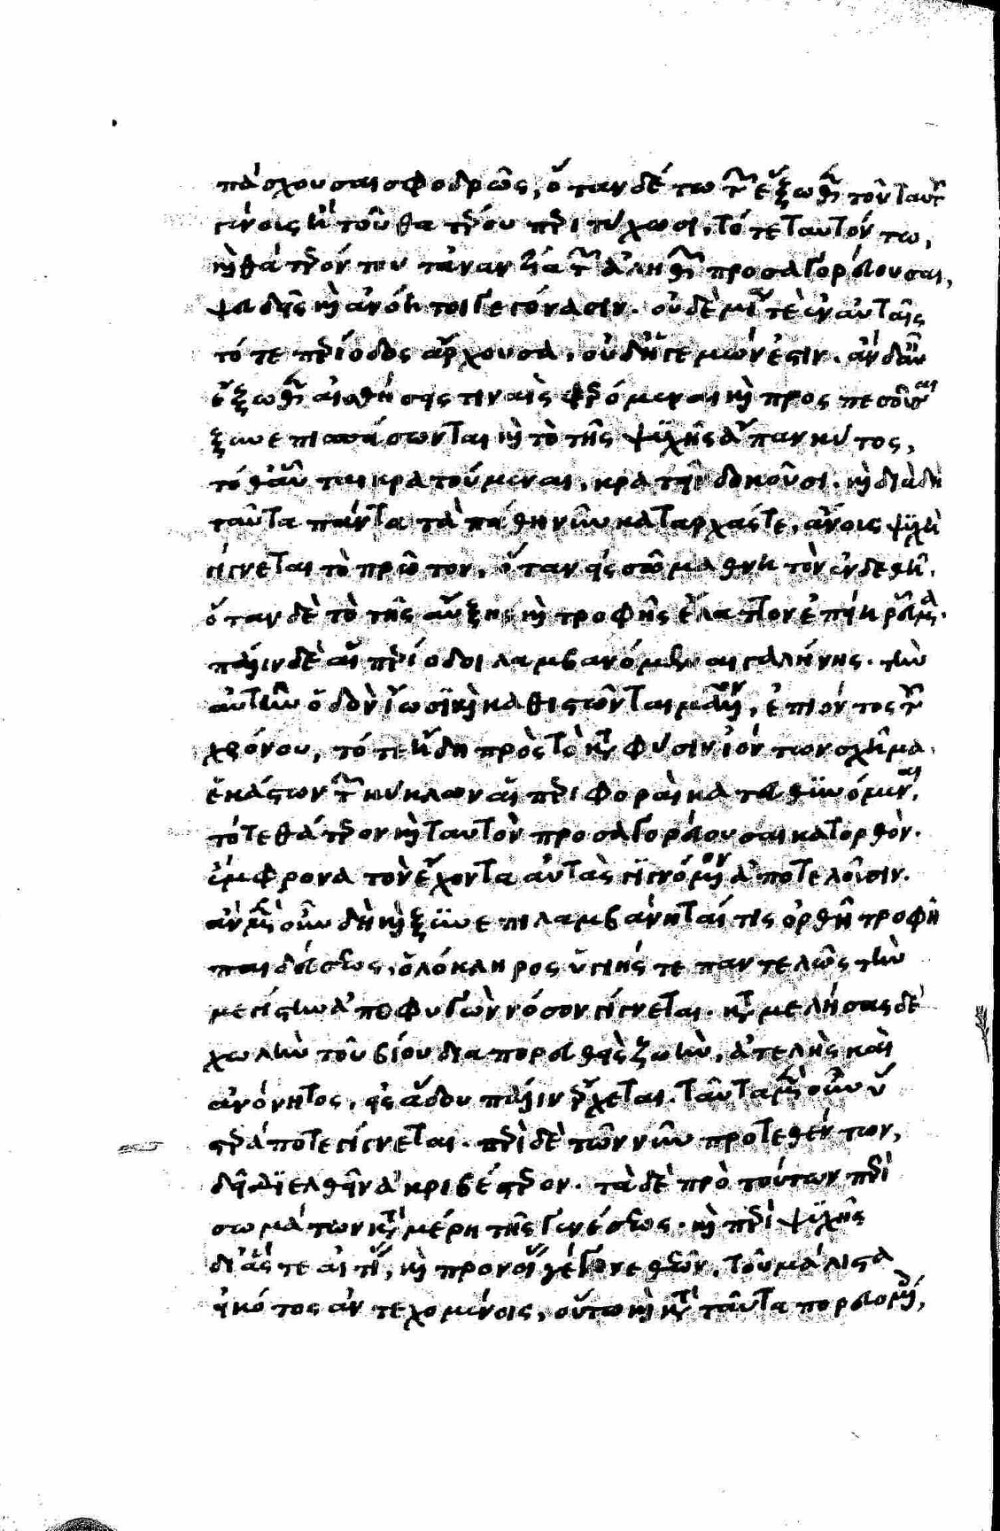 πάσχουσαι σφοδρῶς, ὅταν δέ τω τῶν ἔξωθεν τοῦ ταυτοῦ
γένοις ἢ τοῦ θατέρου περιτύχωσι, τότε ταυτόν τω,
καὶ θάτερόν του τἀναντία τῶν ἀληθῶν προσαγορεύουσαι,
ψευδεῖς καὶ ἀνόητοι γεγόνασιν. οὐδὲ μία τὲ ἐν αὐταῖς
τότε περίοδος ἄρχουσα, οὐδ' ἡγεμών ἐστιν. ἂν δ' αὖ
ἔξωθεν αἰσθήσεις τιναὶς φερόμεναι καὶ προσπεσοῦσαι
ξυνεπισπάσωνται καὶ τὸ τῆς ψυχῆς ἅπαν κύτος,
τόθ' αὗται κρατούμεναι, κρατεῖν δοκοῦσι. καὶ διὰ δὴ
ταῦτα πάντα τὰ παθήματα νῦν καταρχάς τε, ἄνοις ψυχὴ
γίγνεται τὸ πρῶτον, ὅταν εἰς σῶμα θνητὸν ἐνδεθῆ.
ὅταν δὲ τὸ τῆς αὔξης καὶ τροφῆς ἔλαττον ἐπίῃ ρεῦμα.
πάλιν δὲ αἱ περίοδοι λαμβανόμεναι γαλήνης. τὴν
αὑτῶν ὁδὸν ἴωσι καὶ καθιστῶνται μᾶλλον, ἐπιόντος τοῦ
χρόνου, τότε ἤδη πρὸς τὸ κατὰ φύσιν ἰόντων σχῆμα.
ἑκάστων τῶν κύκλων αἱ περιφοραὶ κατευθυνόμεναι,
τότε θάτερον καὶ ταυτὸν προσαγορεύουσαι κατορθὸν.
ἔμφρονα τὸν ἔχοντα αὐτὰς γιγνόμενον ἀποτελοῦσιν.
ἂν μὲν οὖν δὴ καὶ ξυνεπιλαμβάνηταί τις ὀρθὴ τροφὴ
παιδεύσεως, ὁλόκληρος ὑγιής τε παντελῶς τὴν
μεγίστην ἀποφυγὼν νόσον γίγνεται. καταμελήσας δὲ
χωλὴν τοῦ βίου διαπορευθεὶς ζωὴν, ἀτελὴς καὶ
ἀνόνητος, εἰς ᾅδου πάλιν ἔρχεται. ταῦτα μὲν οὖν ὕ
στερά ποτε γίγνεται. περὶ δὲ τῶν νῦν προτεθέντων,
δεῖ διελθεῖν ἀκριβέστερον. τὰ δὲ πρὸ τούτων περὶ
σωμάτων κατὰ μέρη τῆς γενέσεως. καὶ περὶ ψυχῆς
δι' ἅς τε αἰτίας, καὶ προνοίας γέγονε θεῶν, τοῦ μάλιστα
εἰκότος ἀντεχομένοις, οὕτω καὶ κατὰ ταῦτα πορευομένοις,